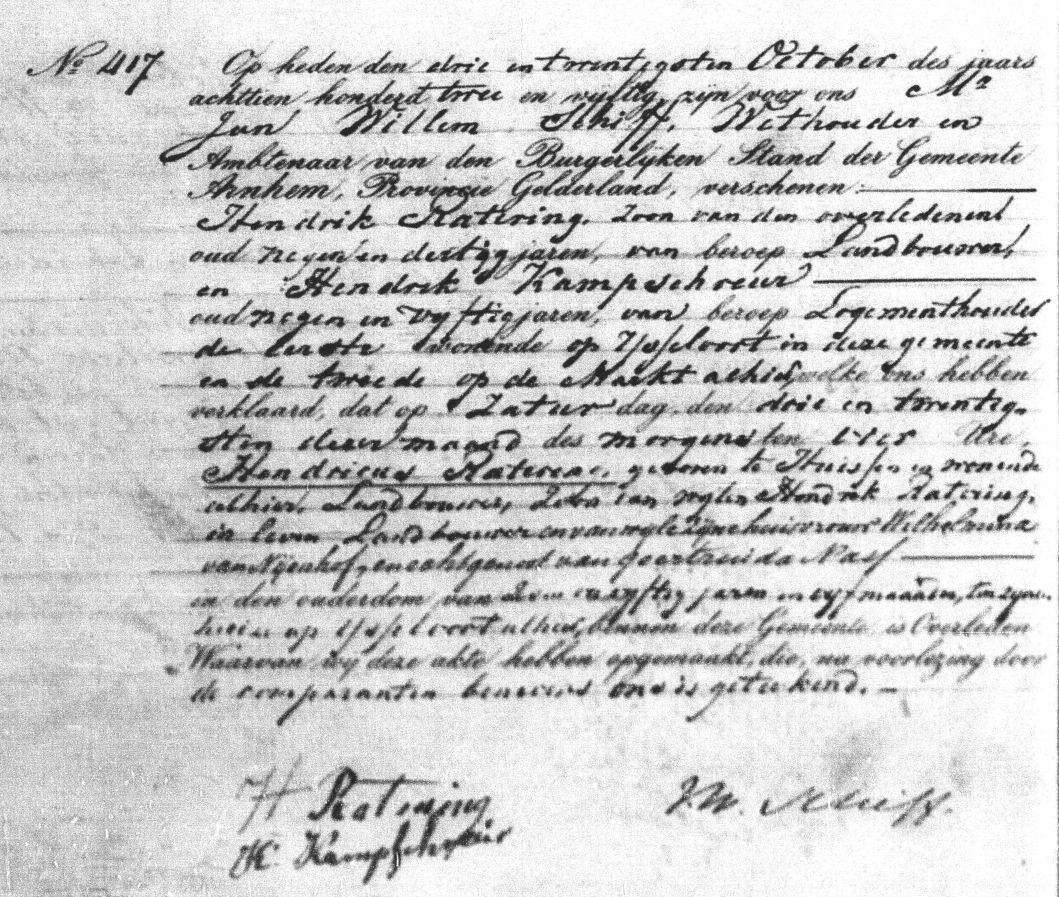 No 417 Op heden den drie en twentigsten October des jaars
achttien honderd twee en vyftig, zijn voor ons Mr
Jan Willem Schiff, Wethouder en
Ambtenaar van den Burgerlijken Stand der Gemeente
Arnhem, Provincie Gelderland, verschenen:
Hendrik Katering, zoon van den overledenen
oud negen en dertig jaren, van beroep Landbouwer,
en Hendrik Kampschreur
oud negen en vyftig jaren, van beroep Logementhouder
de eerste wonende op Ysseloort in deze gemeente
en de tweede op de Markt alhier, welke ons hebben
verklaard, dat op Zaturdag den drie en twentig
sten dezer maand des morgens ten vier Ure,
Hendricus Katering, geboren te Huissen en wonende
alhier, Landbouwer, Zoon van wylen Hendrik Katering,
in leven Landbouwer en van wyle zyne huisvrouw Wilhelmina
van Nyenhof, en echtgenoot van Geertruida Nass
in den ouderdom van en vyftig jaren en vyf maanden, ten zynen
huize op Ysseloort alhier, binnen deze Gemeente, is Overleden
Waarvan wij deze akte hebben opgemaakt, die, na voorlezing door
de comparanten benevens ons is geteekend.
H Katering
H. Kampschreur
J.W. Schiff.